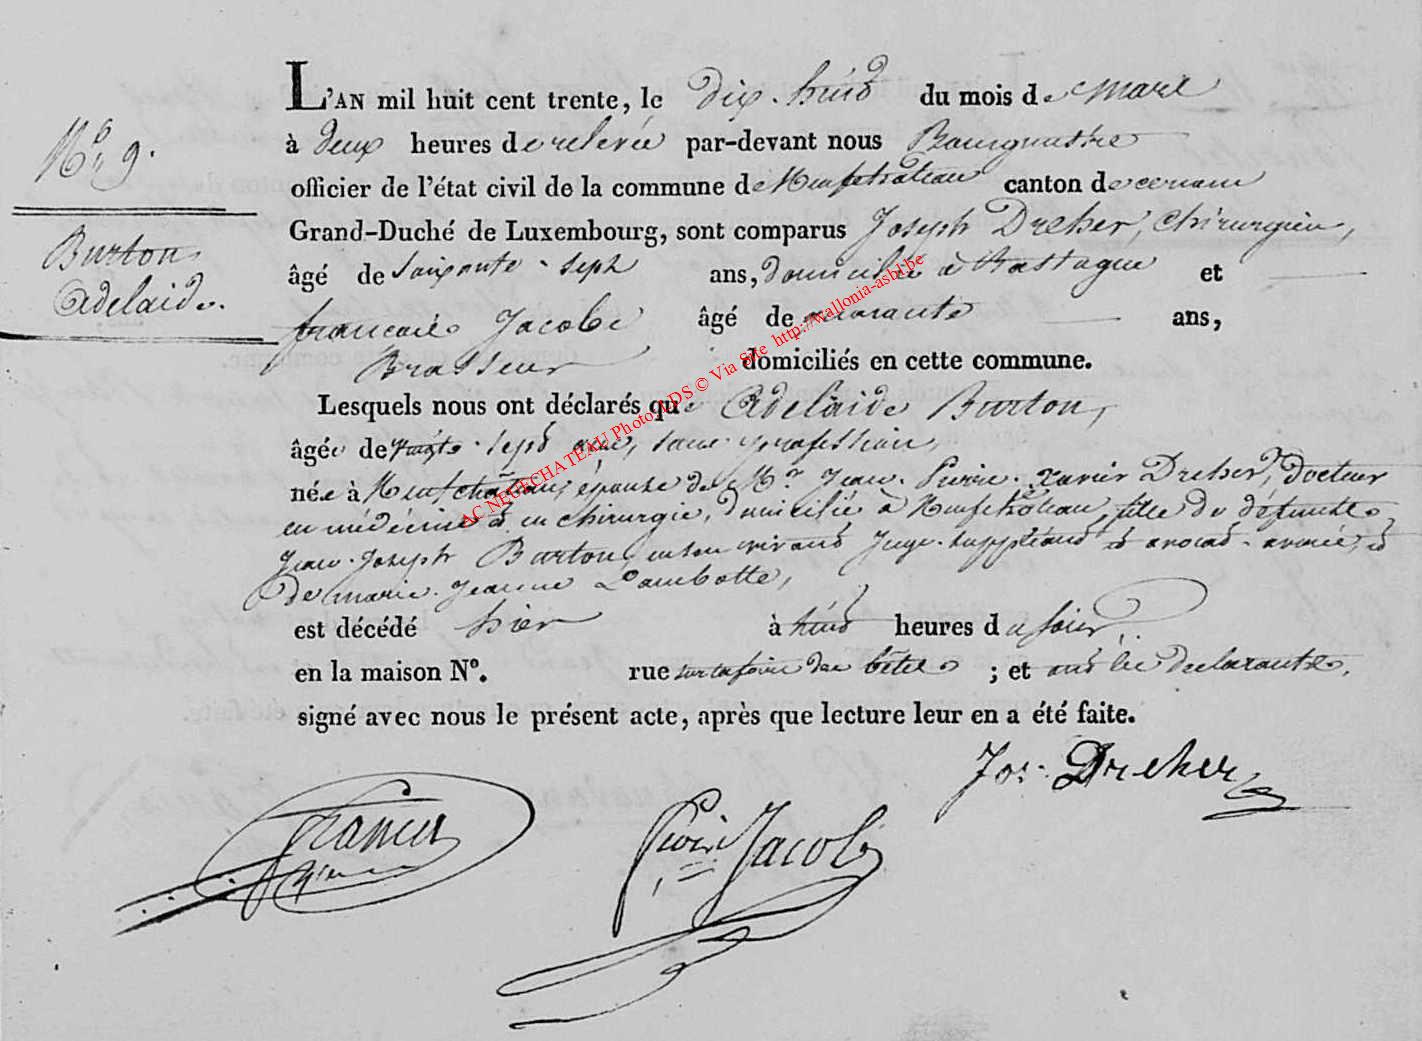 N.o 9.
Burton
Adelaide.
L'AN mil huit cent trente, le dix-huit du mois de mars
à deux heures de relevée par-devant nous Bourguestre
officier de l'état civil de la commune de Neufchâteau canton de
Grand-Duché de Luxembourg, sont comparus Joseph Dreher, Chirurgien,
âgé de soixante-sept ans, domicilié à Bastogne et
francois Jacob âgé de quarante ans,
Brasseur domiciliés en cette commune.
Lesquels nous ont déclarés que Adelaïde Burton,
âgée de vingt-sept ans, sans profession,
née à Neufchâteau, épouse de Mr. Jean-Pierre-Xavier Dreher, docteur
en médecine et en chirurgie, domicilié à Neufchâteau, fille de défunt
Jean-Joseph Burton, en son vivant Juge-suppléant et avocat-avoué, et
de marie-Jeanne Lambotte,
est décédé hier à huit heures du soir
en la maison No. rue sur la foire des bêtes ; et ont les declarants,
signé avec nous le présent acte, après que lecture leur en a été faite.
Jos. Dreher
Jacob
AC NEUFCHATEAU Photo LDS © Via Site http://wallonia-asbl.be